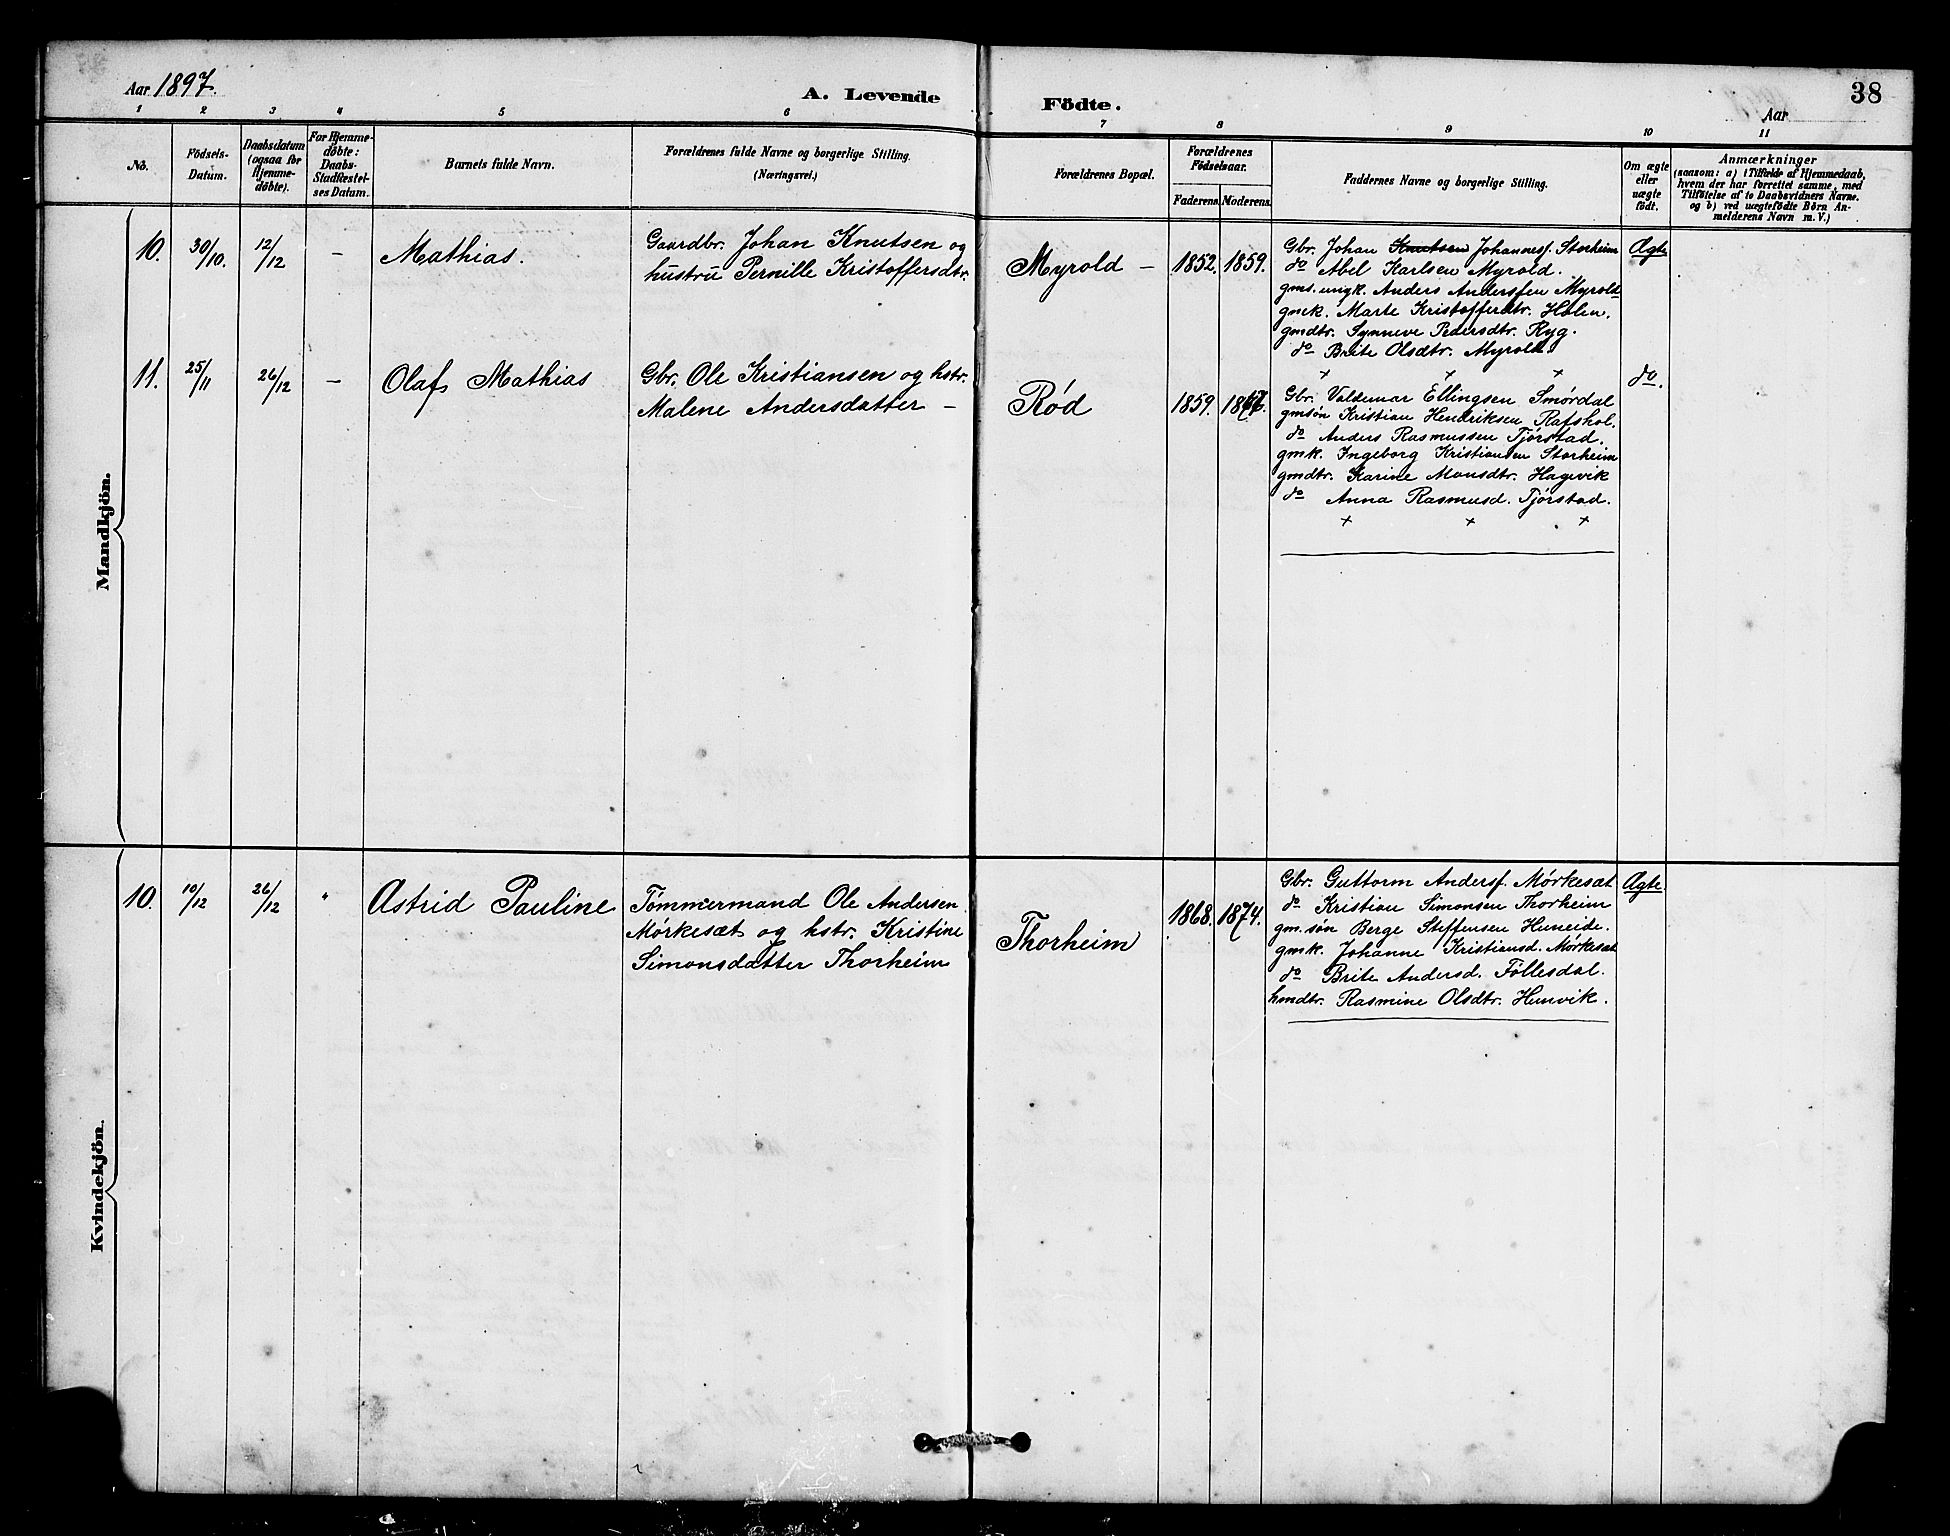 Aar 1897.
A. Levende Födte.
Aar
38
1 2 3 4 5 6 7 8 9 10 11
No.
Födsels-Datum.
Daabsdatum (ogsaa for Hjemme-døbte).
For Hjemme-døbte: Daabs-Stadfæstel-ses Datum.
Barnets fulde Navn.
Forældrenes fulde Navne og borgerlige Stilling.
(Næringsvei.)
Forældrenes Bopæl.
Forældrenes Födselsaar.
Faderens. Moderens.
Faddernes Navne og borgerlige Stilling.
Om ægte eller uægte født.
Anmærkninger
(saasom: a) i Tilfælde af Hjemmedaab,
hvem der har forrettet samme, med
Tilføielse af to Daabsvidners Navne.
og b) ved uægtefödte Börn An-
melderens Navn m. V.)
Mandkjön.
10. 30/10. 12/12 – Mathias.
Gaardbr. Johan Knutsen og
hustru Pernille Kristoffersdtr.
Myrold – 1852. 1859.
Gbr. Johan Knutsen Johannesf. Storheim
do Abel Karlsen Myrold.
gms. ungk. Anders Andersfen Myrold
gmk. Marte Kristofferdtr. Holen.
gmdtr. Synneve Pedersdtr. Ryg.
do Brite Olsdtr. Myrold.
+ + +
Ægte
11. 25/11 26/12 – Olaf Mathias
Gbr. Ole Kristiansen og hstr.
Malene Andersdatter –
Rød 1859. 1867.
Gbr. Valdemar Ellingsen Smørdal
gmsøn Kristian Hendriksen Rafshol.
do Anders Rasmussen Tjørstad.
gmk. Ingeborg Kristiansen Storheim
gmdtr. Karine Monsdtr. Hagevik
do Anna Rasmusd. Tjørstad.
+ + +
do.
Kvindekjön.
10. 10/12 26/12 " Astrid Pauline
Tømmermand Ole Andersen
Mørkesæt og hstr. Kristine
Simonsdatter Thorheim
Thorheim 1868. 1874.
Gbr. Guttorm Andersf. Mørkesæt
do Kristian Simonsen Thorheim
gm.søn Berge Steffensen Huneide.
gmk. Johanne Kristiansd. Mørkesæt
do Brite Andersd. Föllesdal.
hmdtr. Rasmine Olsdtr. Hunvik.
Ægte